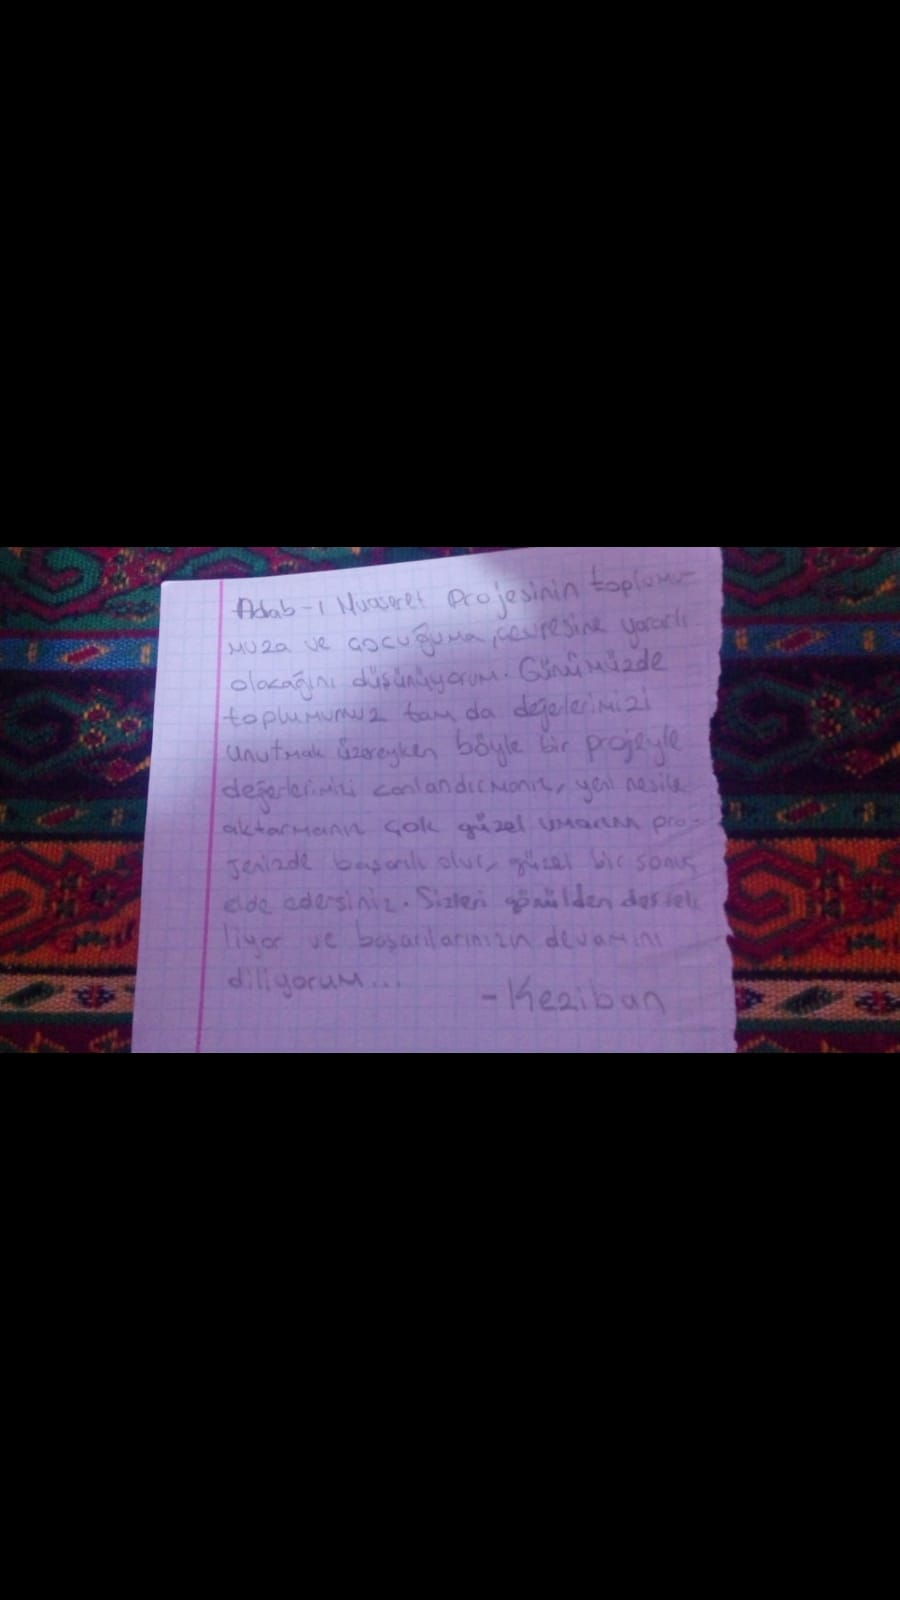 Adab-ı Muaşeret Projesinin toplumu-
muza ve çocuğuma, çevresine yararlı
olacağını düşünüyorum. Günümüzde
toplumumuz tam da değerlerimizi
unutmak üzereyken böyle bir projeyle
değerlerimizi canlandırmanız, yeni nesile
aktarmanız çok güzel umarım pro-
jenizde başarılı olur, güzel bir sonuç
elde edersiniz. Sizleri gönülden destek
liyor ve başarılarınızın devamını
diliyorum...
-Keziban